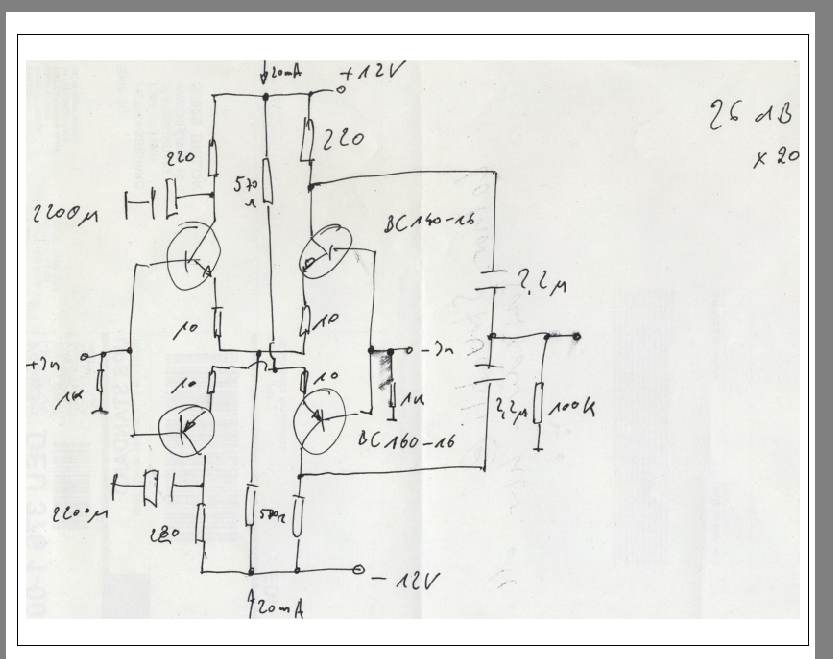 20mA
+12V
26 dB
x 20
220
220
570
Ω
2200µ
BC140-16
2,2µ
10
10
+In
-In
1K
10
10
1K
2,2µ
100K
BC160-16
2200µ
220
570Ω
-12V
20mA